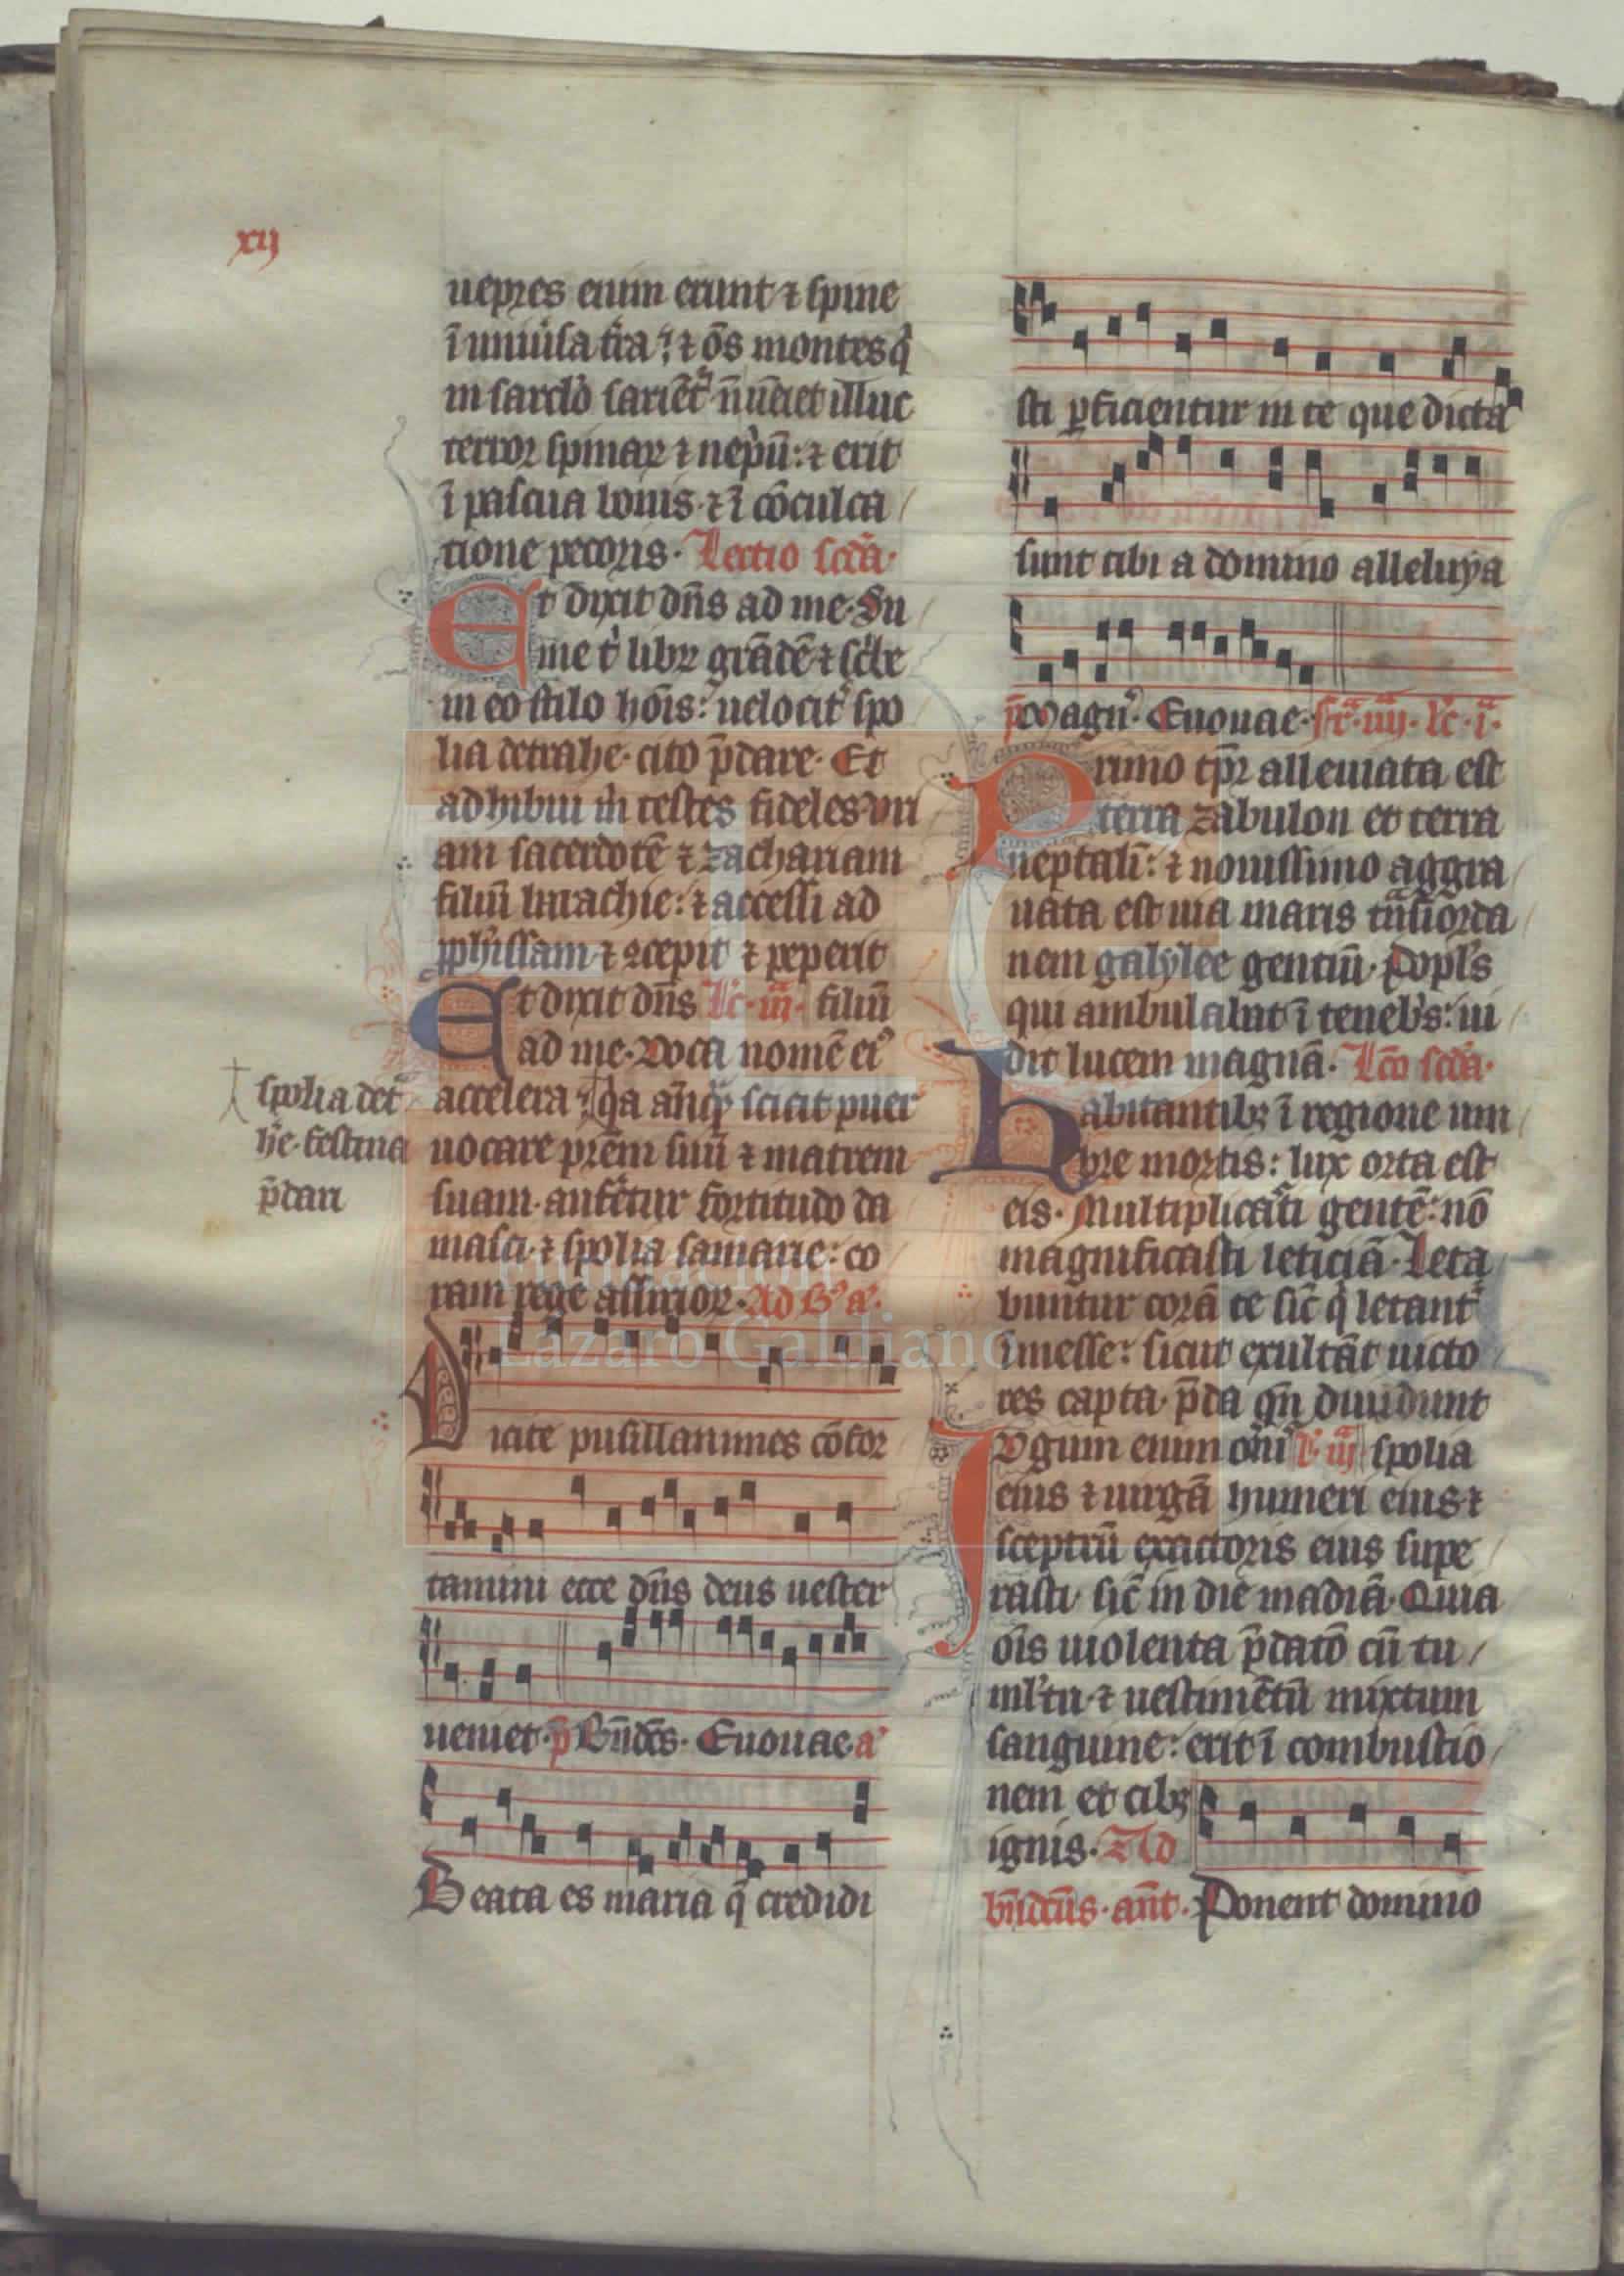 xij
uepres enim erunt ⁊ spine
ī uniũsa tr̃a. ⁊ õs montes q̇
in sarclo sarient̾ ñ ueĩet illuc
terror spinaꝝ ⁊ uepũ: ⁊ erit
ī pascua bouis. ⁊ ī cõculca
tione pecoris. Lectio scd̃a.
Et dixit dñs ad me. Su
me t̾ libꝝ grãdẽ ⁊ sc̾be
in eo stilo hõis: uelocit̾ spo
lia detrahe. cito p̃dare. Et
adhibui m̾ testes fideles. uri
am sacerdotẽ ⁊ zachariam
filiũ barachie: ⁊ accessi ad
ꝓph̾issam ⁊ ꝯcepit ⁊ peperit
Et dixit dñs Lc̃. iij. filiũ
ad me. Voca nomẽ ei⁹
accelera. q̾a añq̃ sciat puer
spolia det̾
he. festina
p̃dari
uocare pr̃em suũ ⁊ matrem
suam. aufer̃tur fortitudo da
masci. ⁊ spolia samarie: co
ram rege assirioꝝ. Ad B̾s a.
Dicite pusillanimes cõfor
tamini ecce dñs deus uester
ueniet. p̃ Bñdcs. Euouae. a
Beata es maria q̃ credidi
sti ꝑficientur in te que dicta
sunt tibi a domino alleluya
p̃s magñ. Euouae. fr̃. iiij. lc̃. i.
Primo tp̃ꝛ alleuiata est
terra zabulon et terra
neptali: ⁊ nouissimo aggra
uata est uia maris tñs iorda
nem galylee gentiũ. Popl̾s
qui ambulabat ī teneb̾s: ui
dit lucem magnã. Lc̃o scd̃a.
habitantibꝫ ī regione um
bre mortis: lux orta est
eis. Multiplicasti gentẽ: nõ
magnificasti leticiã. Leta
buntur corã te sic̃ q̇ letant̾
ī messe: sicut exultãt uicto
res capta. p̃da qñ diuidunt
Iugum enim oñi l̾. iij. spolia
eius ⁊ uirgã humeri eius ⁊
sceptrũ exactoris eius supe
rasti. sic̃ in die madiã. Quia
oĩs uiolenta p̃datõ cũ tu
ml̾tu. ⁊ uestimẽtũ mixtum
sanguine: erit ī combustio
nem et cibꝫ
ignis. Ad
bñdcũs. añt. Ponent domino
Lázaro Galdiano